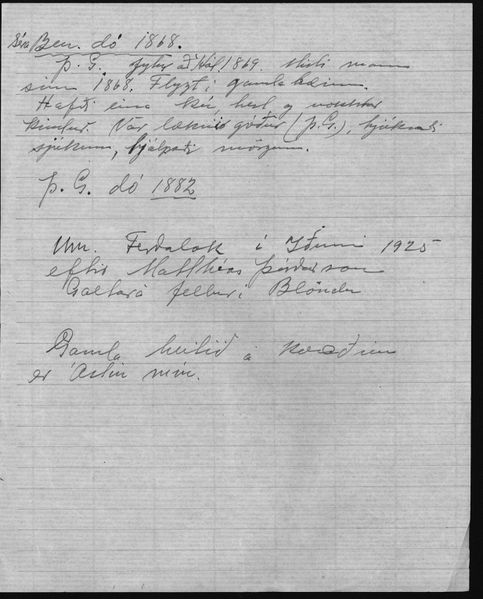 Séra Ben. dó 1868.
Þ. G. flytur að Hól, 1869. mann
sinn 1868. Flyzt í gamla
Hafði eina kú, hest og nokkrar
kindur. Var læknir góður (Þ. G.), hjúkraði
sjúkum, hjálpaði mörgum.
Þ. G. dó 1882
Um Ferðalok í Iðunni 1925
eftir Matthías Þórðarson
Galtará fellur í Blöndu
Gamla heitið á
er Ástin mín.